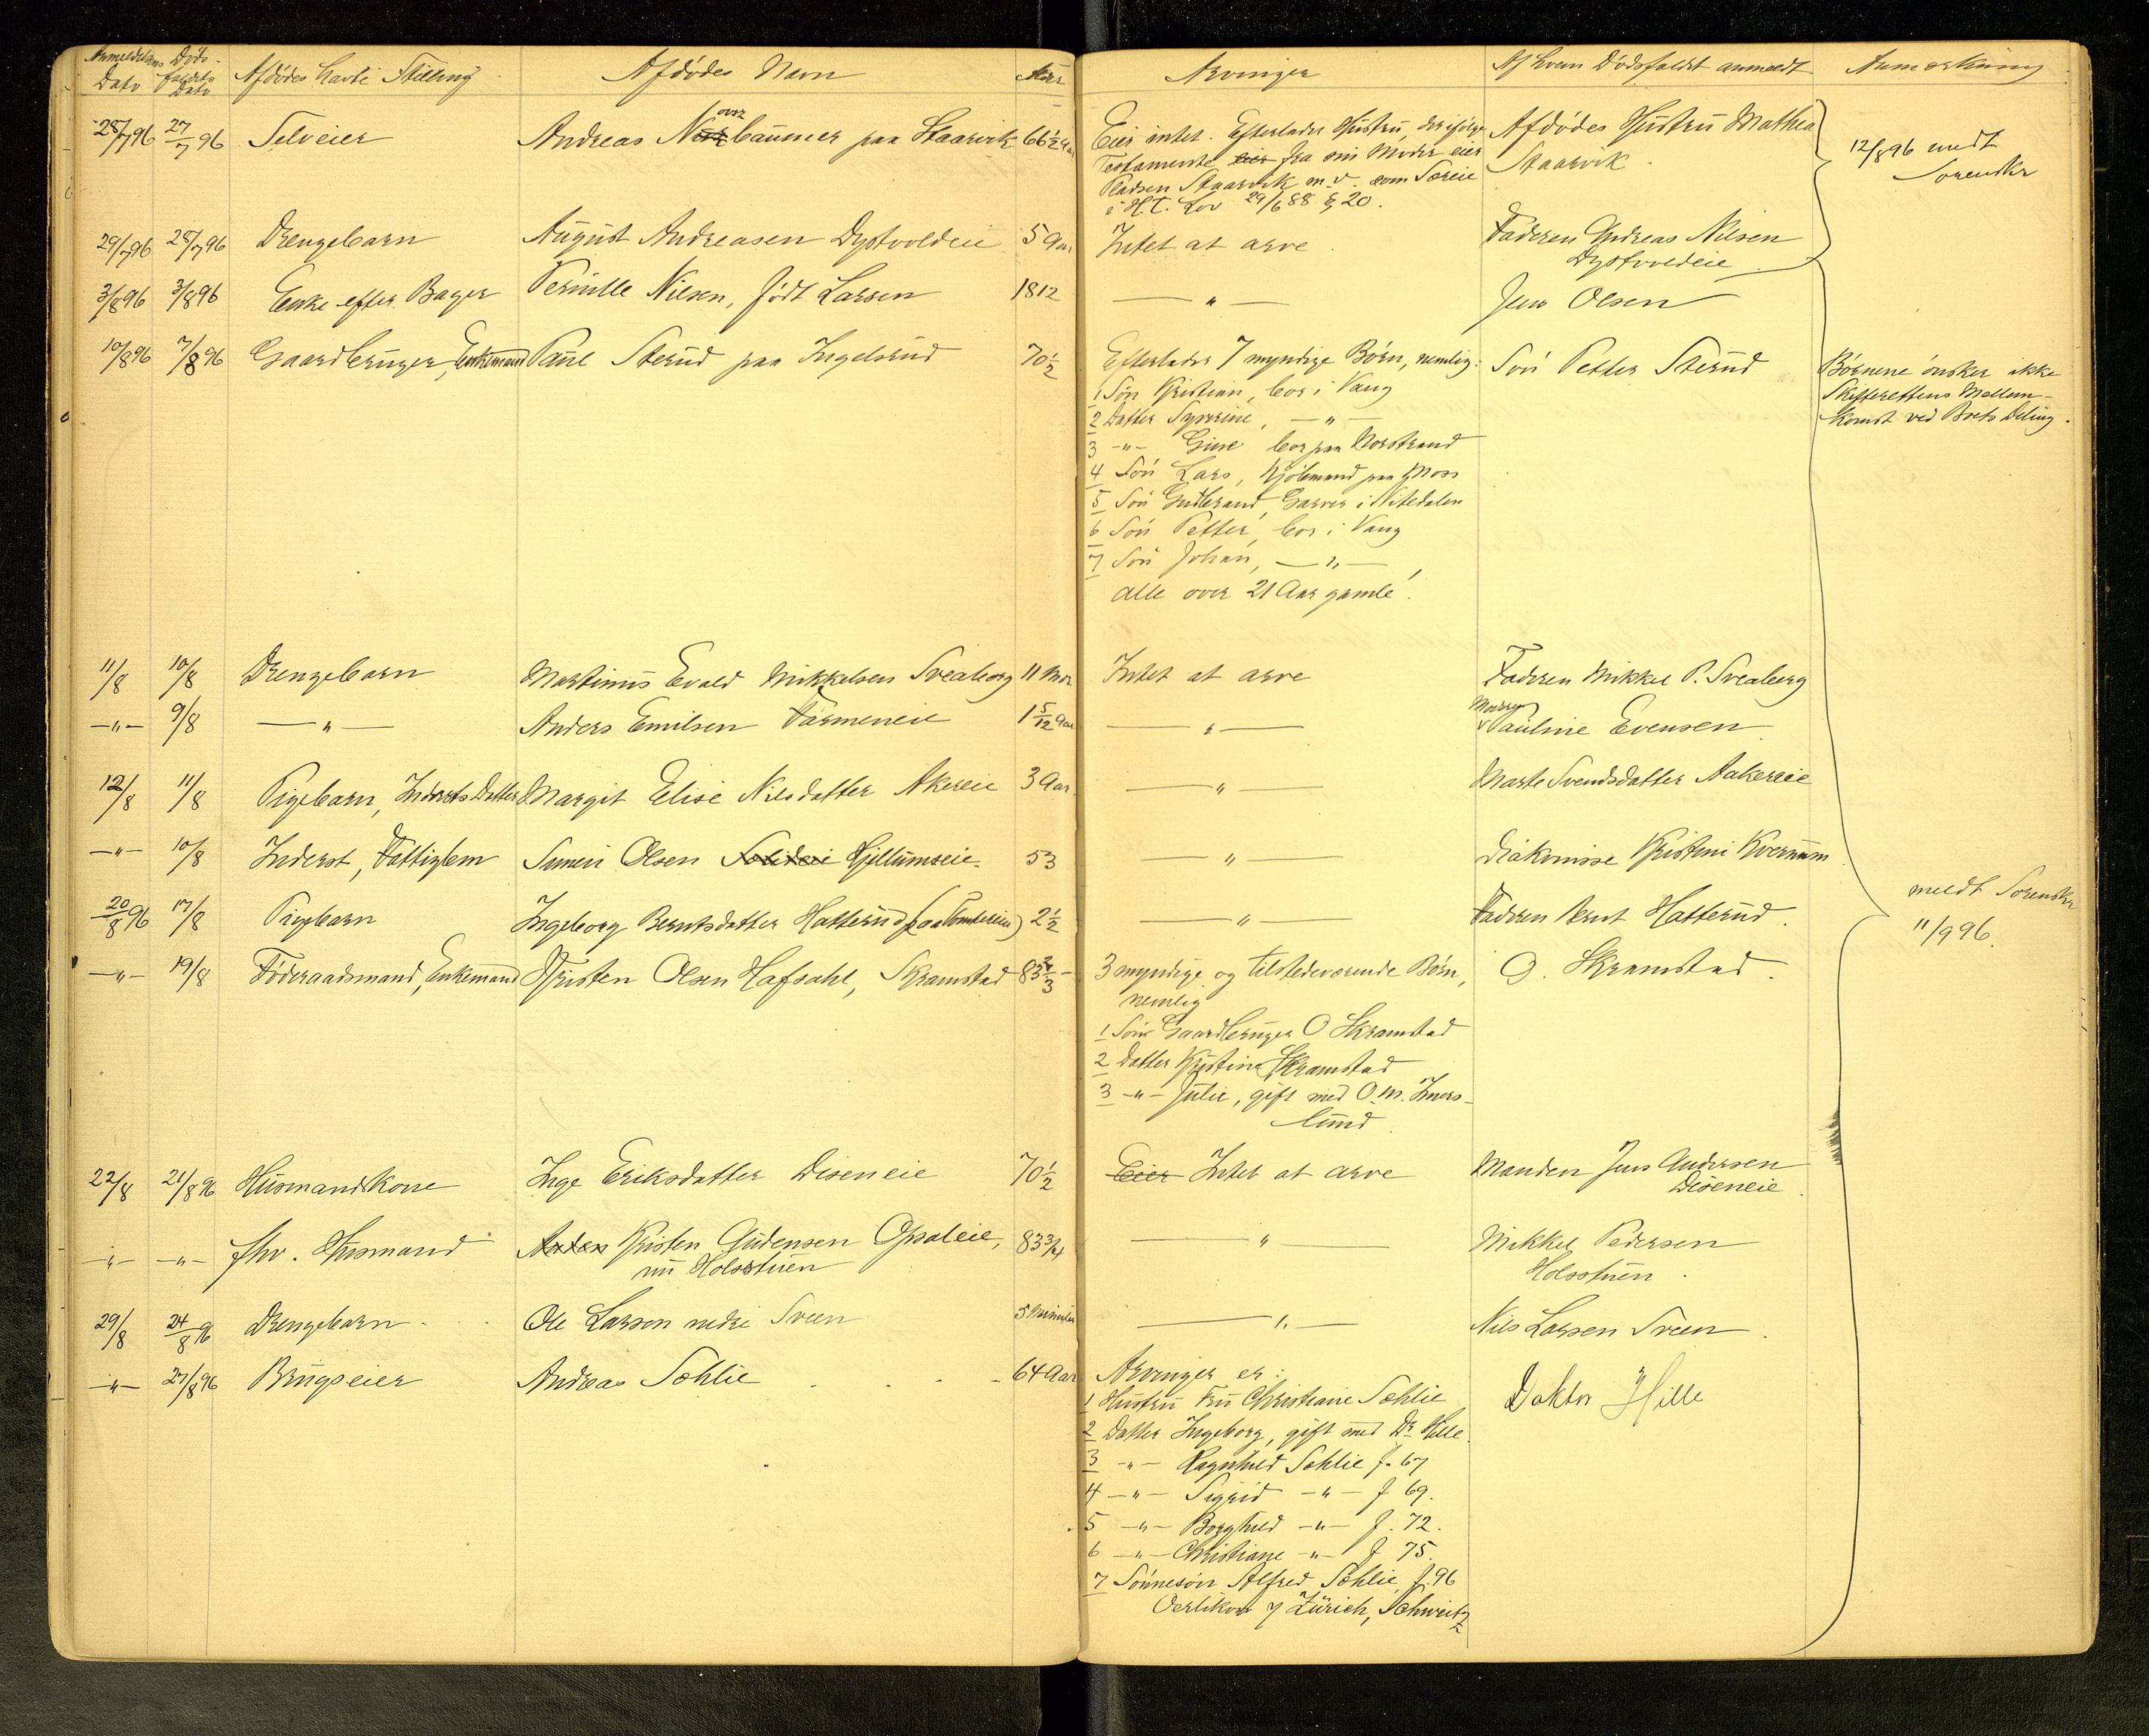 Anmeldelsens Dato Døds-faldets Dato Afdødes Navn Stilling Afdødes Navn Alder Arvinger Af hvem Dødsfaldet anmeldt Anmærkning
28/7 96 27/7 96 Selveier Andreas Baummer paa Staarvik 66 1/2 Aar Eier intet. Efterlader Hustru, der ifølge Afdødes Hustru Mathea
Testamente fra sin Moder eier Staarvik.
Pladsen Staarvik m.v. som Særeie
i H.t. Lov 29/6 88 § 20.
12/8 96 meldt
Sorenskr
29/7 96 28/7 96 Drengebarn August Andreasen Dystvoldeie 5 Aar Intet at arve. Faderen Andreas Nilsen
Dystvoldeie
3/8 96 3/8 96 Enke efter Bager Pernille Nilsen, født Larsen 1812 — " — Jens Olsen
10/8 96 7/8 96 Gaardbruger, Enkemand Paul Sterud paa Ingelsrud 70 1/2 Efterlader 7 myndige Børn, nemlig: Søn Petter Sterud Børnene ønsker ikke
1 Søn Kristian, bor i Vang Skifterettens Mellem-
2 Datter Syverine, — " — komst ved Boets Deling.
3 — " — Gine bor paa Norstrand
4 Søn Lars, Kjøbmand paa Moss
5 Søn Gudbrand, Garver i Nitedalen
6 Søn Petter, bor i Vang
7 Søn Johan, — " —
alle over 21 Aar gamle.
11/8 10/8 Drengebarn Martinus Evald Mikkelsen Sveaborg 11 Mdr Intet at arve Faderen Mikkel P. Sveaborg
— " — 9/8 — " — Anders Emilsen Farmeneie 1 5/12 Aar — " — Moderen
Pauline Evensen
12/8 11/8 Pigebarn, Inderst Datter Margit Elise Nilsdatter Akereie 3 Aar — " — Marte Svendsdatter Aakereie
— " — 10/8 Inderst, Fattiglem Simen Olsen Hjellumseie. 53 — " — Diakonisse Kristine Kvernum
20/8 96 17/8 Pigebarn Ingeborg Berntsdatter Hatterud 2 1/2 — " — Faderen Bernt Hatterud.
meldt Sorenskr
11/9 96.
— " — 19/8 Føderaadsmand, Enkemand Kristen Olsen Hafsahl, Skramstad 83 3 myndige og tilstedeværende Børn, O. Skramstad.
nemlig
1 Søn Gaardbruger O Skramstad
2 Datter Kristine Skramstad
3 — " — Julie, gift med O.M. Imers-
lund
22/8 21/8 96 Husmandskone Inge Eriksdatter Diseneie 70 1/2 Eier Intet at arve Manden Jens Andersen
Diseneie.
— " — — " — fhv. Husmand Kristen Gudensen Opsaleie, 83 3/4 — " — Mikkel Pedersen
nu Holsstuen Holsstuen.
29/8 24/8 96 Drengebarn Ole Larsen nedre Sveen 5 Minuter — " — Nils Larsen Sveen.
— " — 27/8 96 Brugseier Andreas Sæhlie 64 Aar Arvinger er: Doktor Hille
1 Hustru Fru Christiane Sæhlie
2 Datter Ingeborg, gift med Dr. Hille.
3 — " — Ragnhild Sæhlie f. 67
4 — " — Sigrid — " — f 69.
5 — " — Borghild — " — f. 72.
6 — " — Christiane — " — f 75.
7 Sønnesøn Alfred Sæhlie, f. 96
Oerlikon v/ Zürich, Schweitz